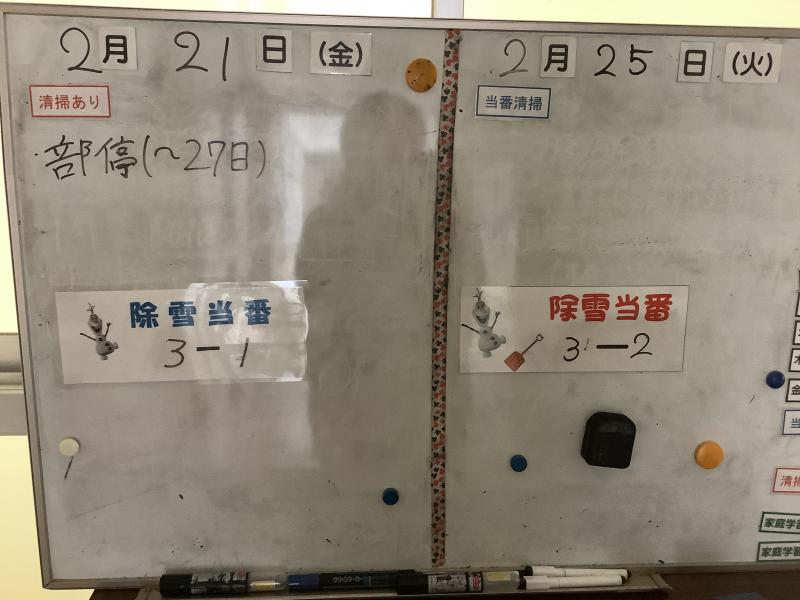 2月 21日 (金)
清掃あり
部停(~27日)
除雪当番
3-1
2月 25日 (火)
当番清掃
除雪当番
3-2
清掃
家庭学習
家庭学習
クリーンマーカー